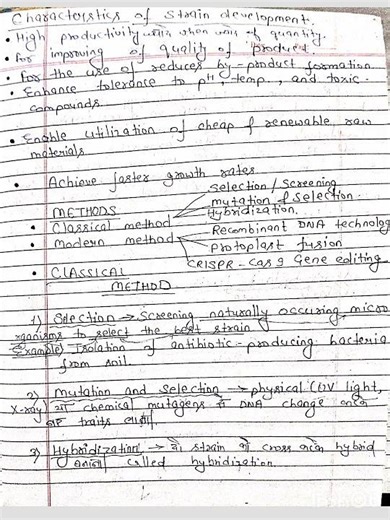 Characteristics of strain development.
• High productivity when of quantity.
• For improving of quality of product.
• For the use of reduces by-product formation.
• Enhance tolerance to pH, temp., and toxic
compounds.
• Enable utilization of cheap & renewable raw
materials
• Achieve faster growth rates
selection/Screening
METHODS mutation & selection.
• Classical method Hybridization.
• Modern method Recombinant DNA technology
Protoplast fusion
CRISPR-Cas9 Gene editing
• CLASSICAL
METHOD
1) Selection → Screening naturally occuring micro
organisms to select the best strain
Example) Isolation of antibiotic-producing bacteria
from soil.
2) Mutation and Selection → physical (UV light,
X-ray) या chemical mutagens से DNA change करके
traits लाना.
3) Hybridization → दो strain को cross करके hybrid
बनाना called hybridization.